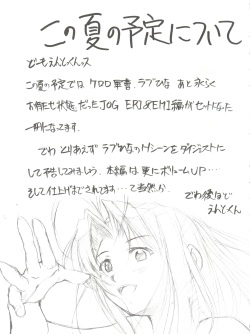 この夏の予定について
どーもえんどくんっス
この夏の予定では ケロロ軍曹、ラブひな あと 永らく
お待たせ状態だったJOG ERI&EMI編がセットになった
一冊になってます。
でわ とりあえず ラブひなのHシーンを ダイジェストに
して 梧してみましょう。本編は 更にボリュームUP……
そして仕上げまでされてますね…て当然か
でわ 後ほど
えんどくん